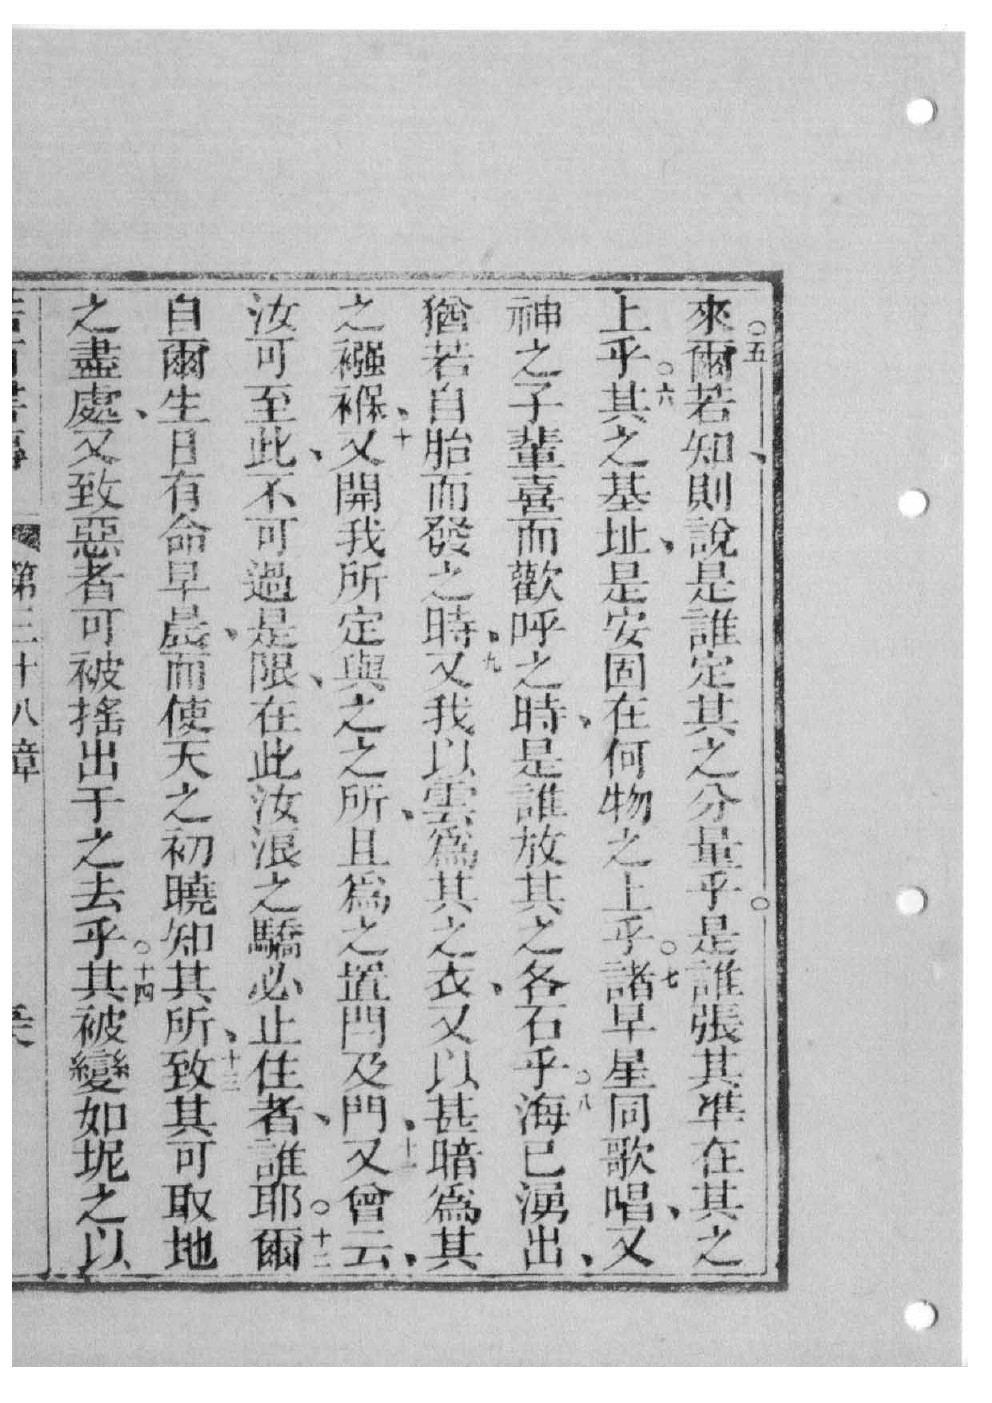 來○五爾若知、則說是誰定其之分量乎○是誰張其準在其之
上乎○六其之基址、是安固在何物之上乎○七諸早星同歌唱、又
神之子輩喜而歡呼之時、是誰放其之各石乎○八海已湧出、
猶若自胎而發之時、九又我以雲為其之衣、又以甚暗為其
之襁褓、十又開我所定與之之所、且為之置閂及門、十一又曾云、
汝可至此、不可過是限、在此汝浪之驕必止住者、誰耶○十二爾
自爾生日有命早晨、而使天之初曉知其所、十三致其可取地
之盡處、又致惡者可被搖出于之去乎○十四其被變如坭之以
第三十八章